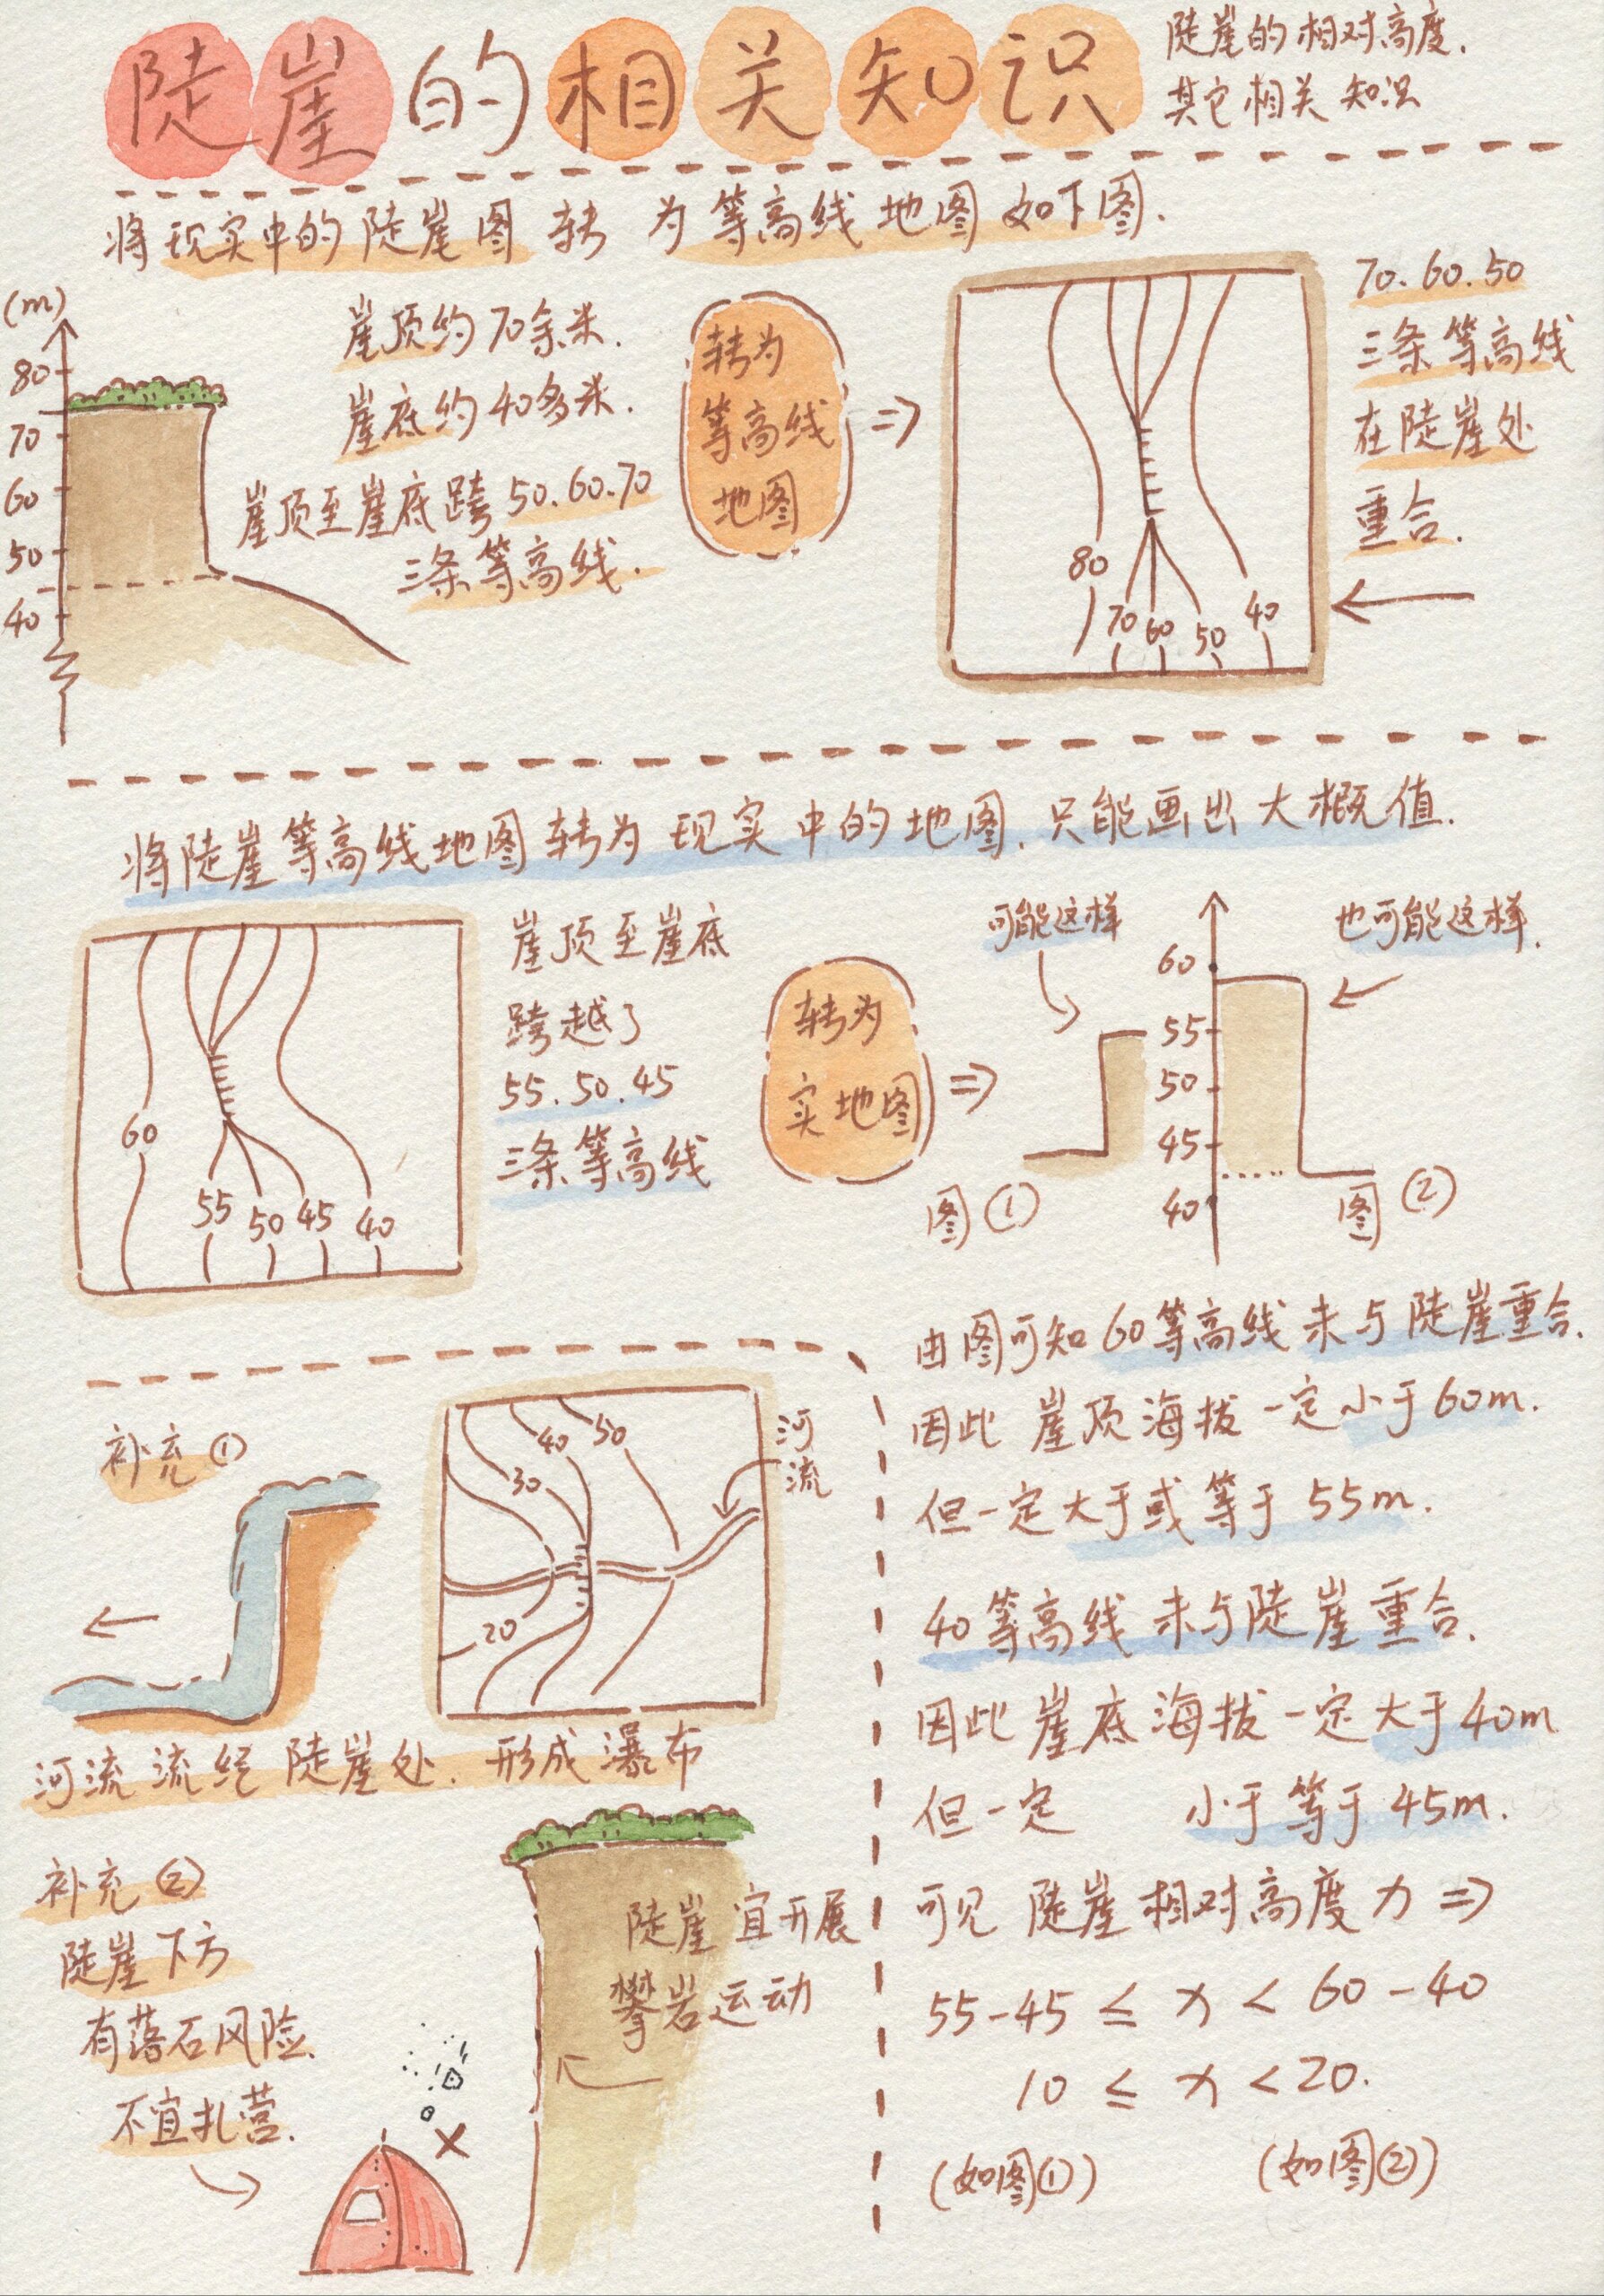 陡崖的相关知识
陡崖的相对高度.
其它相关知识
将现实中的陡崖图转为等高线地图如下图.
(m)
80
70
60
50
40
崖顶约70余米.
崖底约40多米.
崖顶至崖底跨50.60.70
三条等高线.
转为
等高线
地图
80
70
60
50
40
70.60.50
三条等高线
在陡崖处
重合.
将陡崖等高线地图转为现实中的地图.只能画出大概值.
60
55
50
45
40
崖顶至崖底
跨越了
55.50.45
三条等高线
转为
实地图
可能这样
也可能这样.
60
55
50
45
40
图①
图②
由图可知60等高线未与陡崖重合.
因此崖顶海拔一定小于60m.
但一定大于或等于55m.
40等高线未与陡崖重合.
因此崖底海拔一定大于40m
但一定 小于等于45m.
可见陡崖相对高度为⇒
55-45 ≤ x < 60-40
10 ≤ x < 20.
(如图①) (如图②)
补充①
40
50
30
20
河
流
河流流经陡崖处.形成瀑布
补充②
陡崖下方
有落石风险.
不宜扎营.
陡崖宜开展
攀岩运动